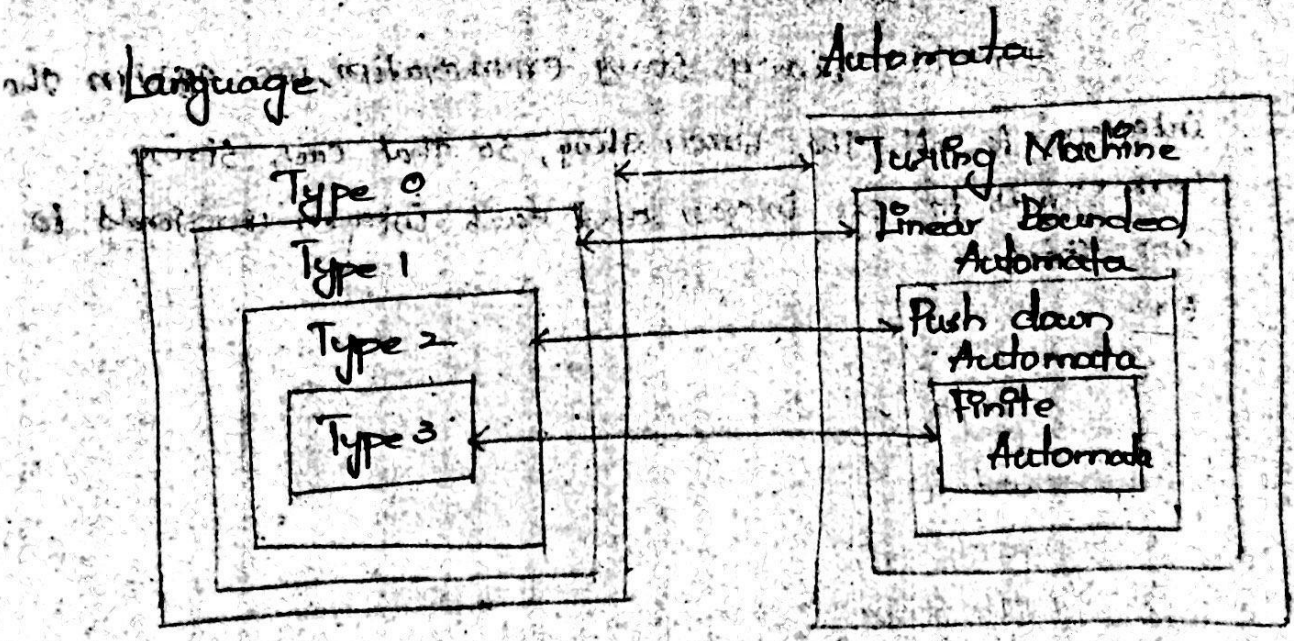 Language
Automata
Type 0
Type 1
Type 2
Type 3
Turing Machine
Linear Bounded
Automata
Push down
Automata
Finite
Automata